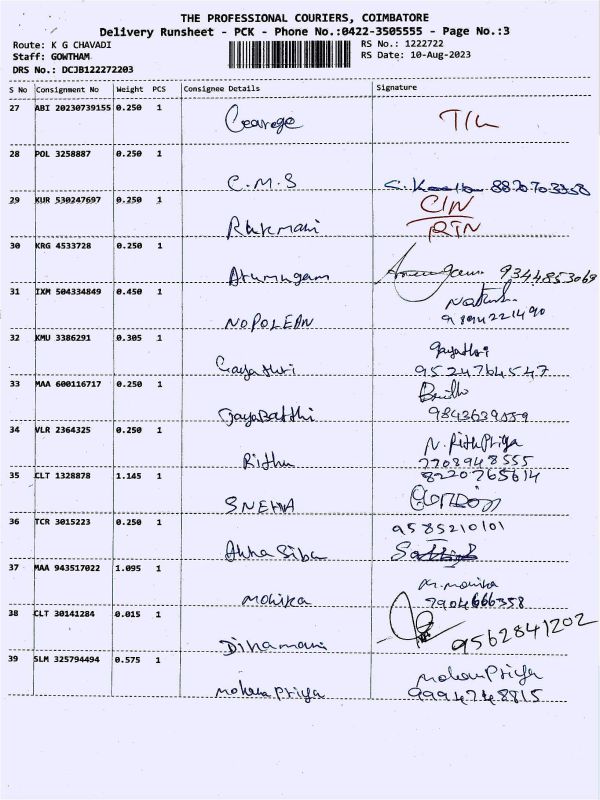 THE PROFESSIONAL COURIERS, COIMBATORE
Delivery Runsheet - PCK - Phone No.:0422-3505555 - Page No.:3
Route: K G CHAVADI
RS No.: 1222722
Staff: GOWTHAM
RS Date: 10-Aug-2023
DRS No.: DCJB122272203
S No Consignment No Weight PCS Consignee Details Signature
27 ABI 20230739155 0.250 1
Cearege
28 POL 3258887 0.250 1
C.M.S
29 KUR 530247697 0.250 1 CIN
Rukmani RTN
30 KRG 4533728 0.250 1
Arumugam 9344853069
31 IXM 504334849 0.450 1
NOPOLEAN 9894221490
32 KMU 3386291 0.305 1 gayathri
Gayathri 9524764547
33 MAA 600116717 0.250 1
9843639559
34 VLR 2364325 0.250 1 N. RithPriya
Rithu 7708948555
35 CLT 1328878 1.145 1 8220765614
SNEHA
36 TCR 3015223 0.250 1 9585210101
37 MAA 943517022 1.095 1 M. monika
monika 7904666358
38 CLT 30141284 0.015 1
Dinamani 9562841202
39 SLM 325794494 0.575 1 mohan Priya
mohan Priya 9994748815